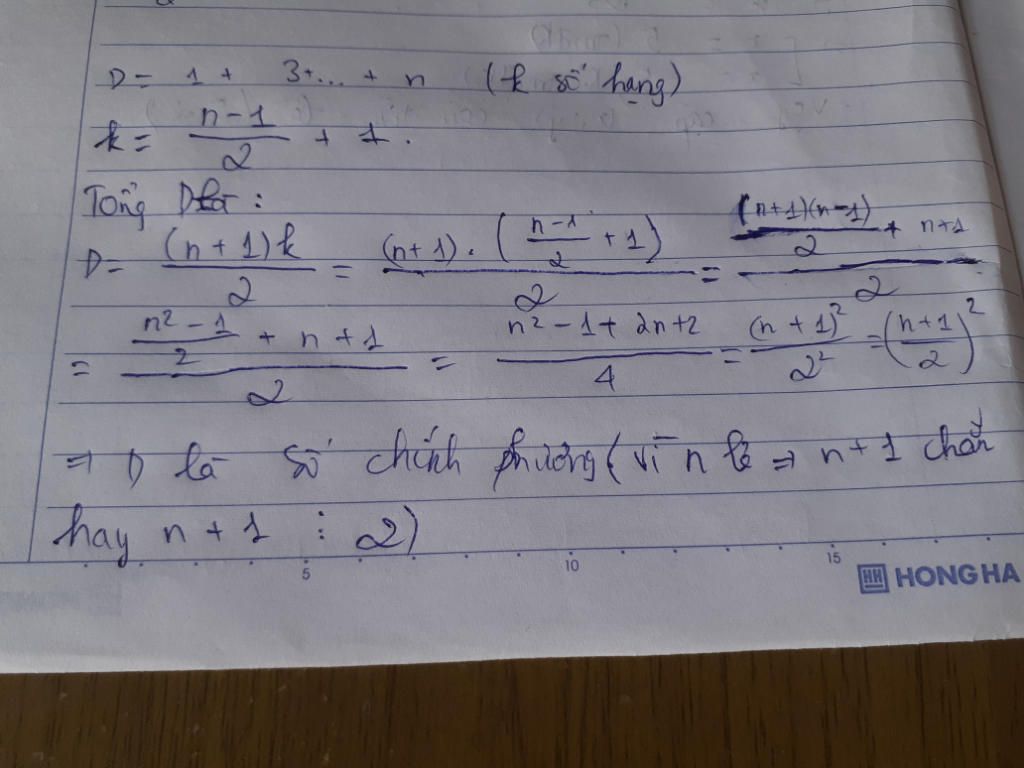 D = 1 + 3 + ... + n (k số hạng)
k = \frac{n-1}{2} + 1.
Tổng D là :
D = \frac{(n+1)k}{2} = \frac{(n+1).(\frac{n-1}{2}+1)}{2} = \frac{\frac{(n+1)(n-1)}{2} + n+1}{2}
= \frac{\frac{n^2-1}{2} + n + 1}{2} = \frac{n^2 - 1 + 2n + 2}{4} = \frac{(n+1)^2}{2^2} = (\frac{n+1}{2})^2
⇒ D là số chính phương ( vì n lẻ ⇒ n + 1 chẵn
hay n + 1 ⋮ 2)
5 10 15
HONG HA